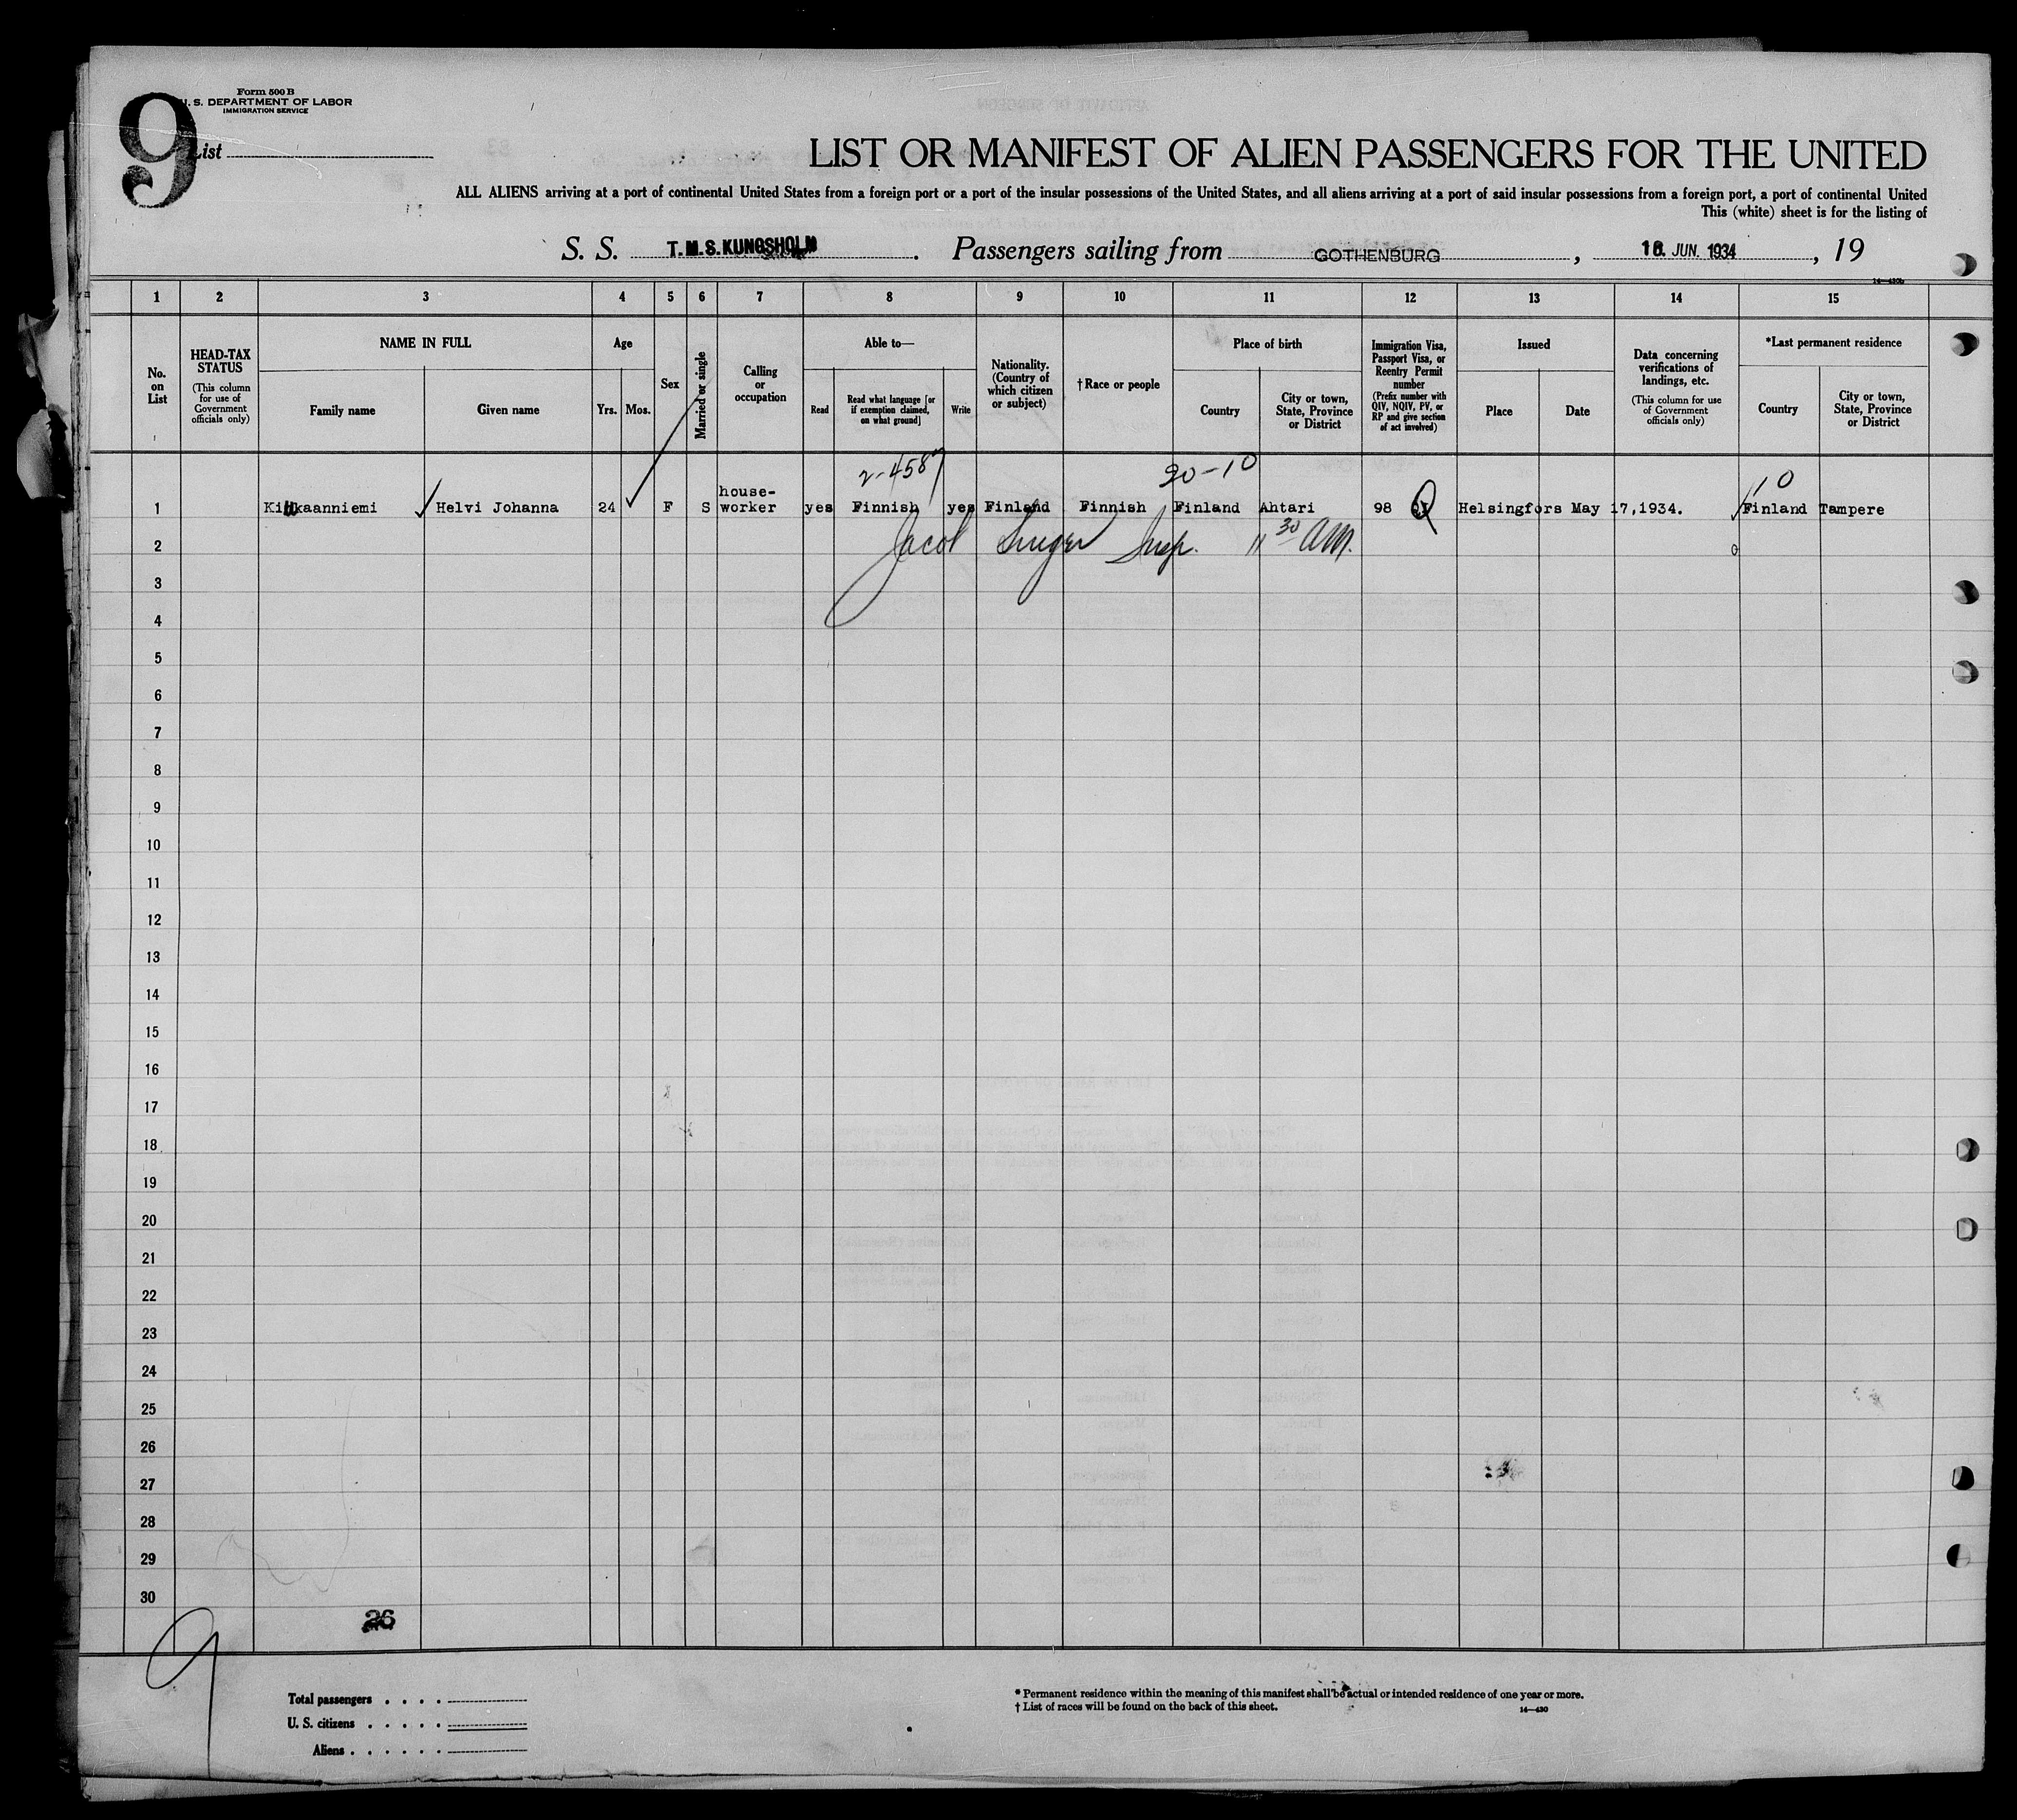 Form 500 B
U. S. DEPARTMENT OF LABOR
IMMIGRATION SERVICE
9
List
LIST OR MANIFEST OF ALIEN PASSENGERS FOR THE UNITED
ALL ALIENS arriving at a port of continental United States from a foreign port or a port of the insular possessions of the United States, and all aliens arriving at a port of said insular possessions from a foreign port, a port of continental United
This (white) sheet is for the listing of
S. S. T.M.S.KUNGSHOLM. Passengers sailing from GOTHENBURG, 16. JUN. 1934, 19
14—430b
1 2 3 4 5 6 7 8 9 10 11 12 13 14 15
No. on List
HEAD-TAX STATUS
(This column for use of Government officials only)
NAME IN FULL
Family name
Given name
Age
Yrs. Mos.
Sex
Married or single
Calling or occupation
Able to—
Read
Read what language [or if exemption claimed, on what ground]
Write
Nationality. (Country of which citizen or subject)
†Race or people
Place of birth
Country
City or town, State, Province or District
Immigration Visa, Passport Visa, or Reentry Permit number
(Prefix number with QIV, NQIV, PV, or RP and give section of act involved)
Issued
Place
Date
Data concerning verifications of landings, etc.
(This column for use of Government officials only)
*Last permanent residence
Country
City or town, State, Province or District
2-4587
20-10
10
1 Helvi Johanna 24 F S house-worker yes Finnish yes Finland Finnish Finland Ahtari 98 Helsingfors May 17,1934. Finland Tampere
2 Jacob Singer Insp. 11 30 AM.
3
4
5
6
7
8
9
10
11
12
13
14
15
16
17
18
19
20
21
22
23
24
25
26
27
28
29
30
26
9
Total passengers . . . .
U. S. citizens . . . . .
Aliens . . . . . .
* Permanent residence within the meaning of this manifest shall be actual or intended residence of one year or more.
† List of races will be found on the back of this sheet.
14—430